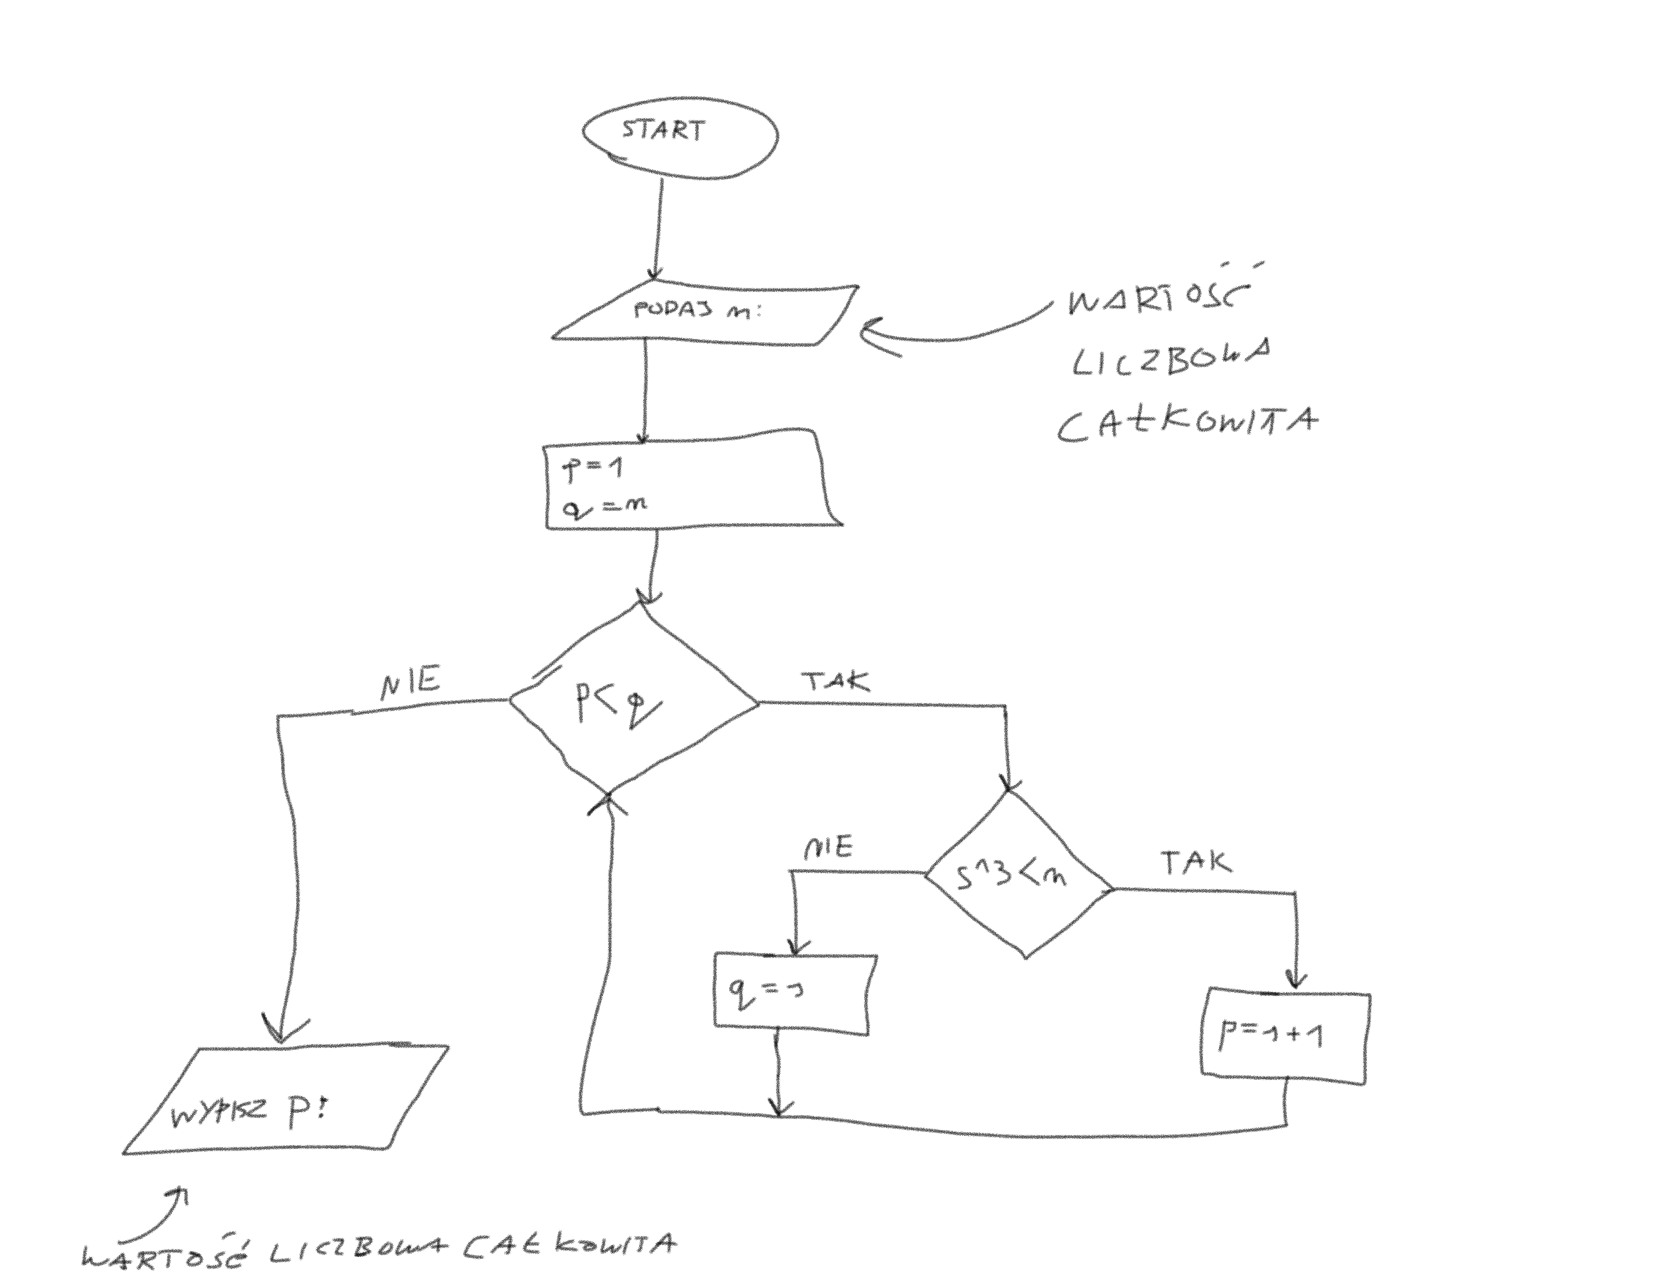 START
PODAJ n:
WARTOŚĆ
LICZBOWA
CAŁKOWITA
p=1
q=n
NIE
p<q
TAK
NIE
s^3<n
TAK
q=s
p=s+1
WYPISZ p!
WARTOŚĆ LICZBOWA CAŁKOWITA